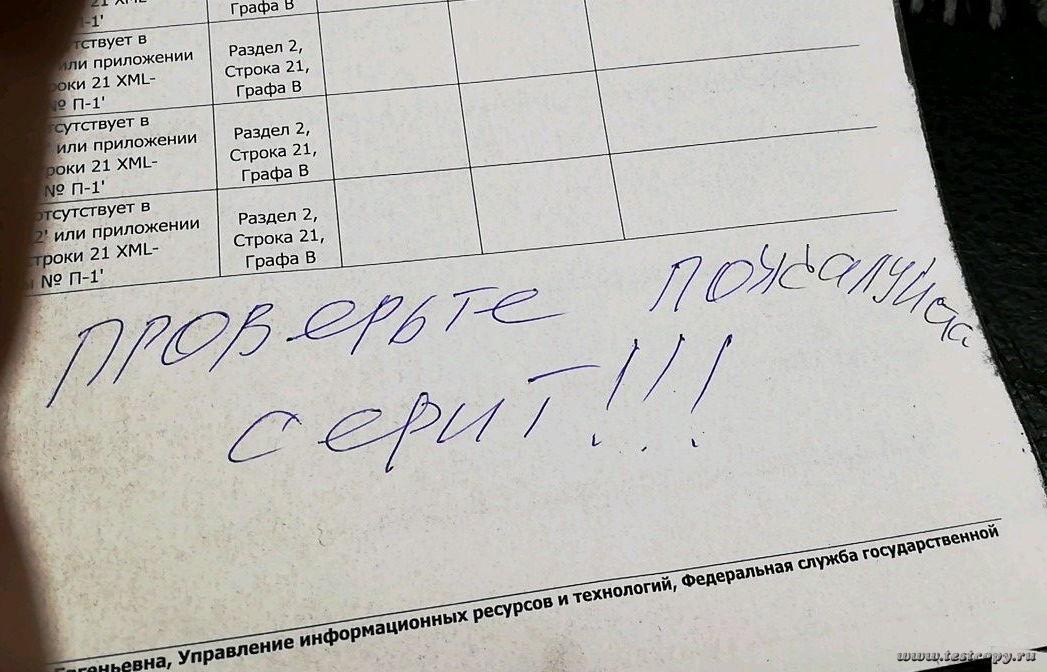 Графа В
-1'
тствует в
или приложении
роки 21 XML-
№ П-1'
Раздел 2,
Строка 21,
Графа В
тсутствует в
или приложении
роки 21 XML-
№ П-1'
Раздел 2,
Строка 21,
Графа В
отсутствует в
2' или приложении
троки 21 XML-
№ П-1'
Раздел 2,
Строка 21,
Графа В
проверьте пожалуйста
серит!!!
Евгеньевна, Управление информационных ресурсов и технологий, Федеральная служба государственной
www.testcopy.ru